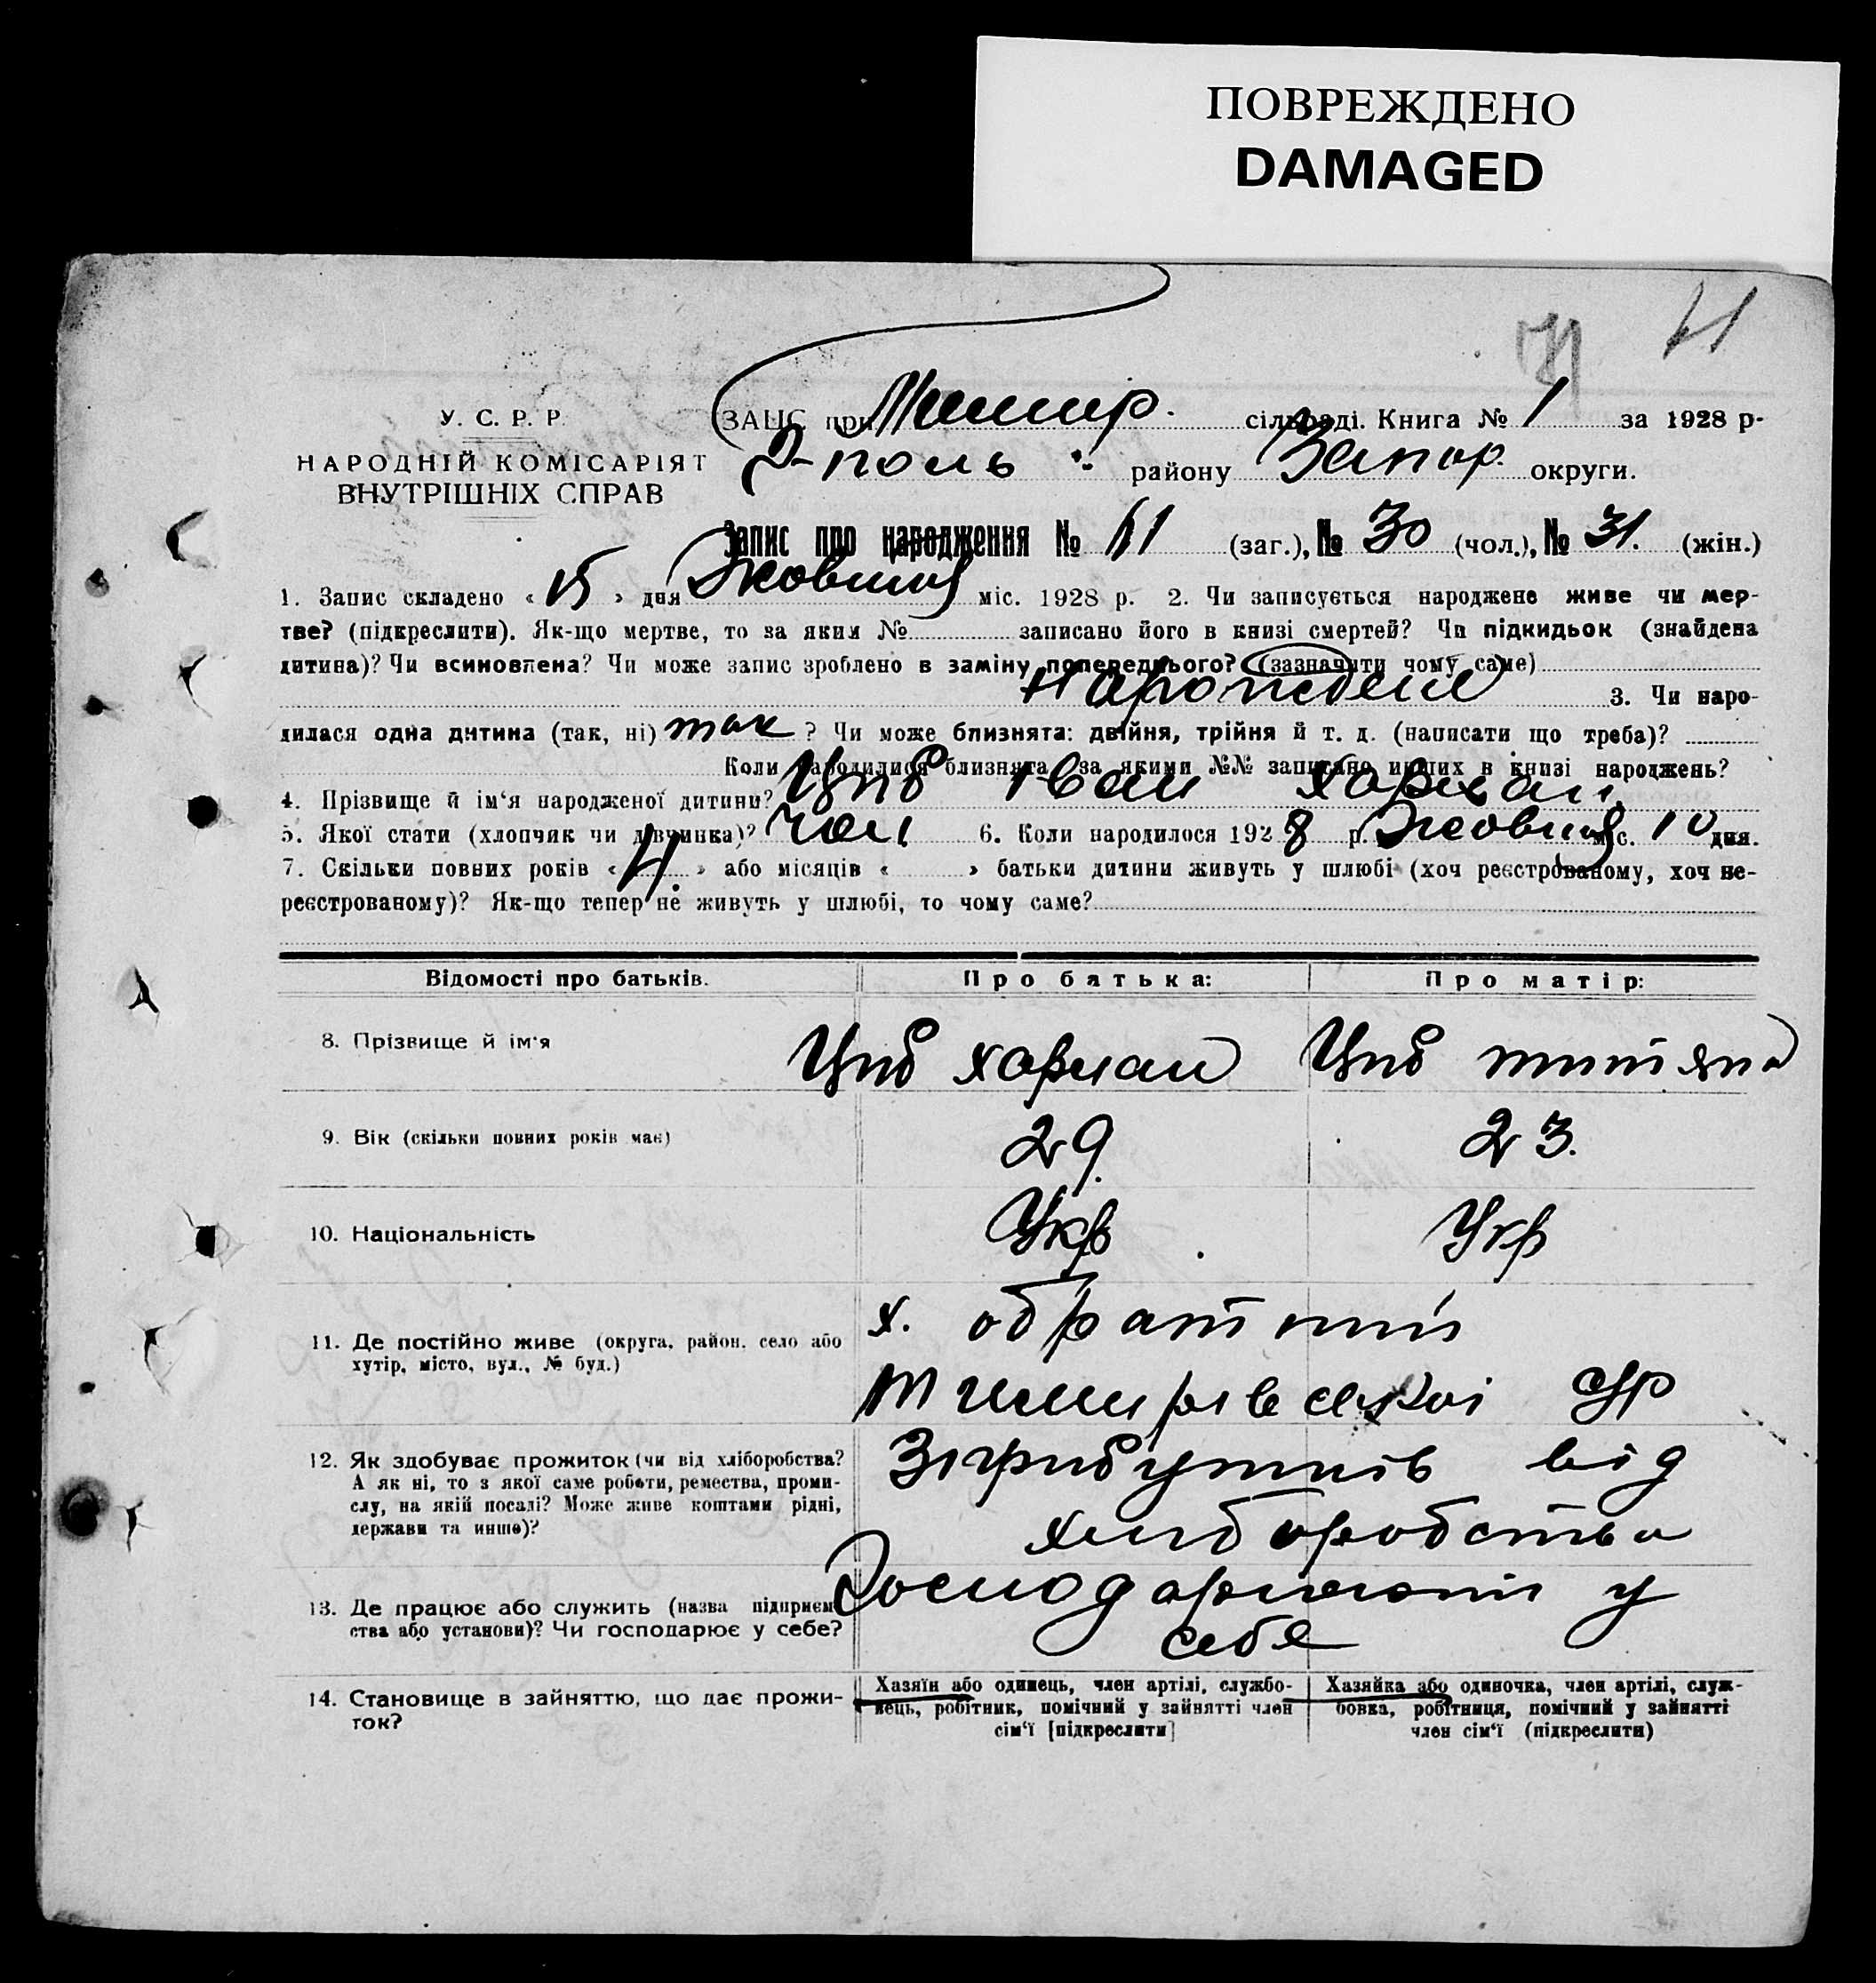 ПОВРЕЖДЕНО
DAMAGED
41
У. С. Р. Р.
НАРОДНІЙ КОМІСАРІЯТ
ВНУТРІШНІХ СПРАВ
ЗАПС при Тимир. сільраді. Книга № 1 за 1928 р-
поль району Запор. округи.
Запис про народження № 61 (заг.), № 30 (чол.), № 31. (жін.)
1. Запис складено « 15 » дня Жовтня міс. 1928 р. 2. Чи записується народжене живе чи мер-
тве? (підкреслити). Як-що мертве, то за яким № записано його в книзі смертей? Чи підкидьок (знайдена
дитина)? Чи всиновлена? Чи може запис зроблено в заміну попереднього? (зазначити чому саме)
3. Чи наро-
дилася одна дитина (так, ні) так ? Чи може близнята: двійня, трійня й т. д. (написати що треба)?
Коли народилися близнята за якими №№ записано инших в книзі народжень?
4. Прізвище й ім‘я народженої дитини? Циб Іван
5. Якої стати (хлопчик чи дівчинка)? Чол. 6. Коли народилося 1928 р. Жовтня міс. 10 дня.
7. Скільки повних років « 4. » або місяців « » батьки дитини живуть у шлюбі (хоч реєстрованому, хоч не-
реєстрованому)? Як-що тепер не живуть у шлюбі, то чому саме?
Відомості про батьків. Про батька: Про матір:
8. Прізвище й ім‘я Циб Циб
9. Вік (скільки повних років має) 29. 23.
10. Національність Укр Укр
11. Де постійно живе (округа, район, село або
хутір, місто, вул., № буд.)
х.
ср
12. Як здобуває прожиток (чи від хліборобства?
А як ні, то з якої саме роботи, ремества, проми-
слу, на якій посаді? Може живе коштами рідні,
держави та инше)?
Зприбутків від
хліборобства
13. Де працює або служить (назва підприєм-
ства або установи)? Чи господарює у себе?
у
себе
14. Становище в зайняттю, що дає прожи-
ток?
Хазяїн або одинець, член артілі, службо-
вець, робітник, помічний у зайнятті член
сім‘ї [підкреслити]
Хазяйка або одиночка, член артілі, служ-
бовка, робітниця, помічний у зайнятті
член сім‘ї (підкреслити)